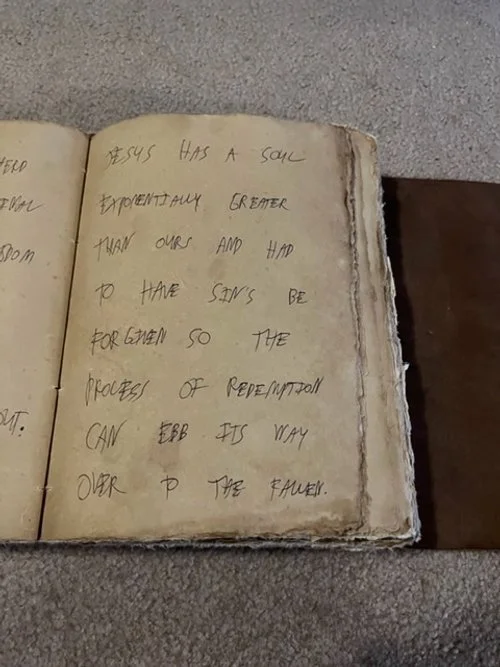 JESUS HAS A SOUL
EXPONENTIALLY GREATER
THAN OURS AND HAD
TO HAVE SIN'S BE
FORGIVEN SO THE
PROCESS OF REDEMPTION
CAN EBB ITS WAY
OVER TO THE FALLEN.
OUT.